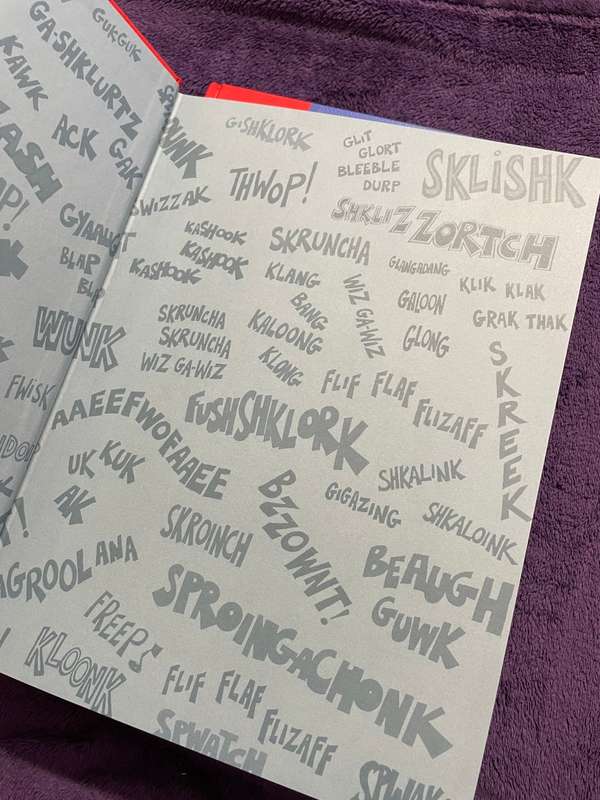 GUKGUK
GA-SHKLURTZ
KAWK
ACK
GAK
GYAAUGT
BLAP
BLAP
WUNK
FWISK
GISHKLORK
GLIT
GLORT
BLEEBLE
DURP
SKLISHK
SWIZZAK
THWOP!
SHKLIZZORTCH
KASHOOK
KASHOOK
KASHOOK
SKRUNCHA
GLANGADANG
KLIK KLAK
KLANG
BANG
WIZ GA-WIZ
GALOON
GRAK THAK
SKRUNCHA
SKRUNCHA
KALOONG
GLONG
WIZ GA-WIZ
KLONG
SKREEK
FLIF FLAF
FLIZAFF
AAEEEFWOFAAEE
FUSHSHKLORK
UK KUK
AK
SHKALINK
GIGAZING
SHKALOINK
BZZOWNT!
SKROINCH
BEAUGH
GUWK
SPROINGACHONK
FREEPS
KLOONK
FLIF FLAF
FLIZAFF
SPWATCH